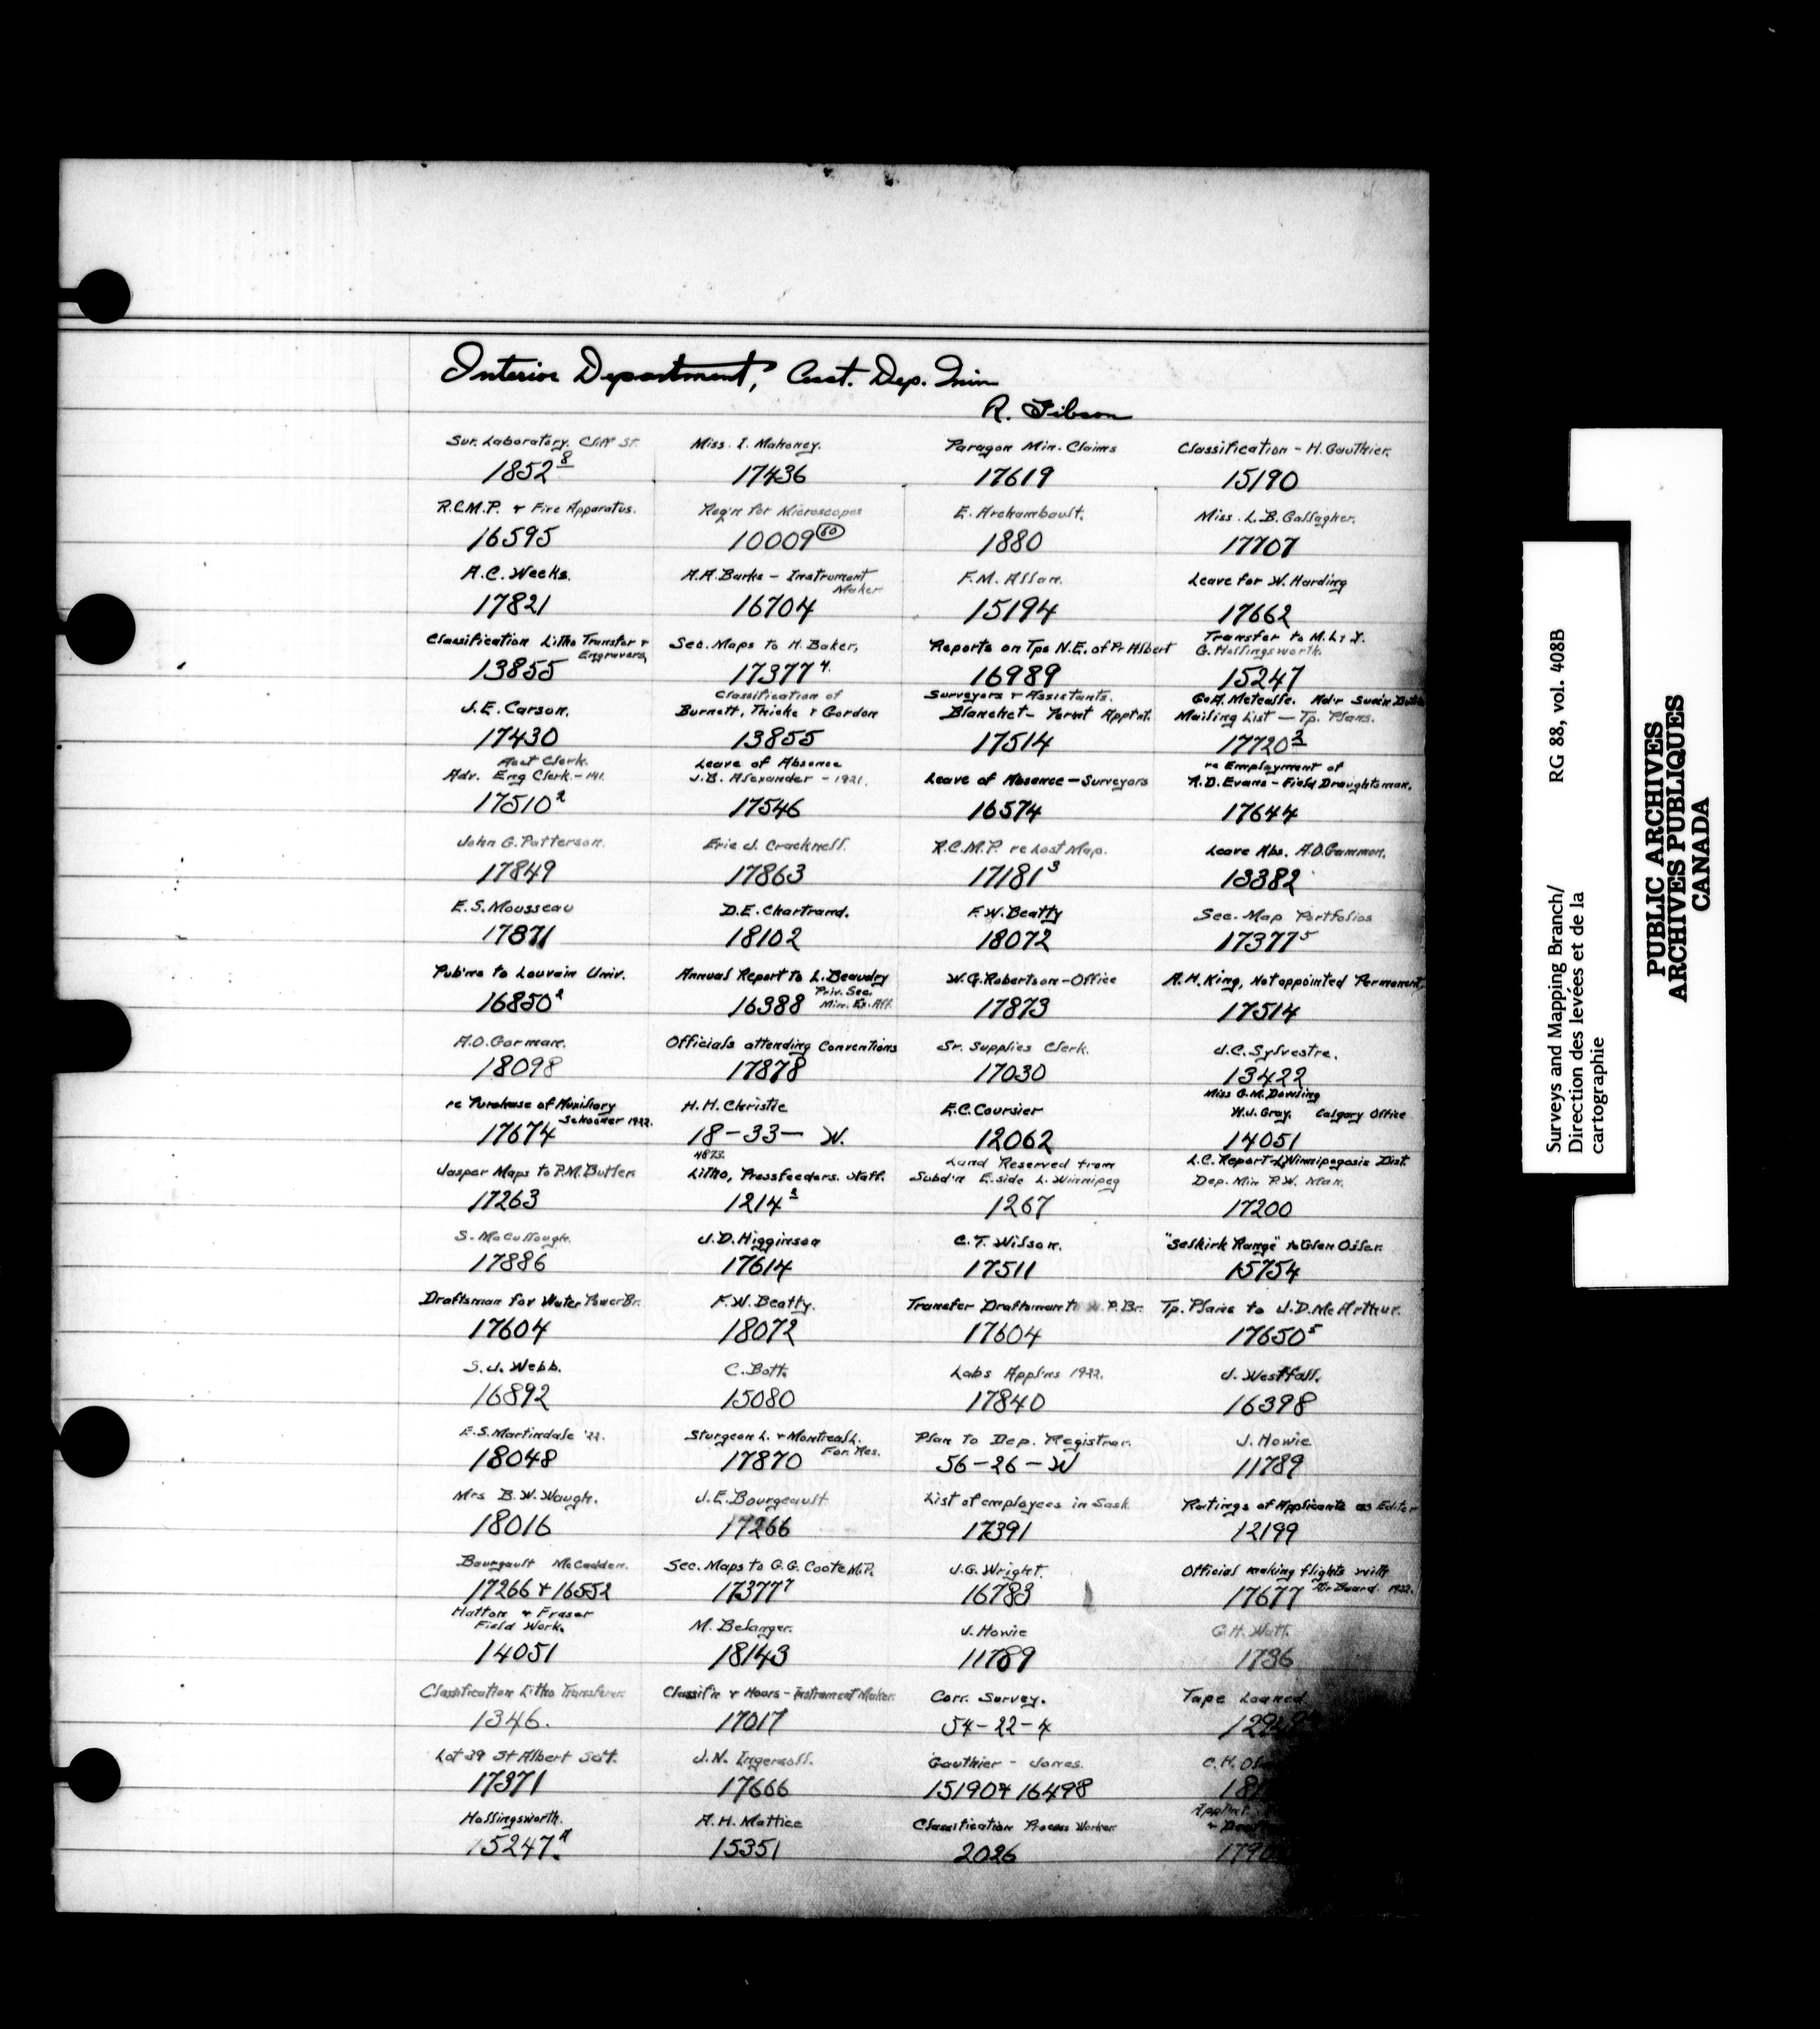 Interior Department, Asst. Dep. Min
R. Gibson
Sur. Laboratory. Cliff St. Miss. I. Mahoney. Paragon Min. Claims Classification - H. Gauthier.
1852 8 17436 17619 15190
R.C.M.P. + Fire Apparatus. Req'n for Microscopes E. Archambault. Miss. L.B. Gallagher.
16595 10009 60 1880 17707
A.C. Weeks. A.A. Burke - Instrument Maker F.M. Allan. Leave for W. Harding
17821 16704 15194 17662
Classification Litho Transfer + Engravers, Sec. Maps to H. Baker, Reports on Tps N.E. of Pr Albert Transfer to
G. Hollingsworth.
13855 17377 4. 16989 15247
J.E. Carson. Classification of Surveyors + Assistants. Geo A. Metcalfe.
Burnett, Thicke + Gordon Blanchet - Permt Apptnt. Mailing List - Tp. Plans.
17430 13855 17514 17720 3
Acct Clerk. Leave of Absence re Employment of
Adv. Eng Clerk. - 141. J.B. Alexander - 1921. Leave of Absence - Surveyors R.D. Evans - Field Draughtsman.
17510 2 17546 16574 17644
John G. Patterson. Eric J. Cracknell. R.C.M.P. re Lost Map. Leave Abs. A.D. Gammon.
17849 17863 17181 3 13382
E.S. Mousseau D.E. Chartrand. F.W. Beatty Sec. Map Portfolios
17871 18102 18072 17377 5
Pub'ns to Louvain Univ. Annual Report to L. Beaudry W.G. Robertson - Office A.H. King, Not appointed Permanent,
Priv. Sec.
Min. Ex. Aff.
16850 2 16388 17873 17514
A.O. Gorman. Officials attending Conventions Sr. Supplies Clerk. J.C. Sylvestre.
18098 17878 17030 13422
re Purchase of Auxiliary Schooner 1922. H.H. Christie E.C. Coursier Miss G.M. Dowling
W.J. Gray. Calgary Office
17674 18-33- W. 12062 14051
Jasper Maps to P.M. Butler 4873. Land Reserved from L.C. Report - L Winnipegosis Dist.
Litho, Pressfeeders. Staff. Subd'n E. side L. Winnipeg Dep. Min P.W. Man.
17263 1214 2 1267 17200
S. McCullough. J.D. Higginson C.T. Wilson. "Selkirk Range" to Glen Osler.
17886 17614 17511 15754
Draftsman for Water Power Br. F.W. Beatty. Transfer Draftsman to W.P. Br. Tp. Plans to J.D. McArthur.
17604 18072 17604 17650 5
S.J. Webb. C. Bott. Labs Appl'ns 1922. J. Westfall.
16892 15080 17840 16398
E.S. Martindale '22. Sturgeon L. + Montreal L. For. Res. Plan to Dep. Registrar. J. Howie
18048 17870 56-26-W 11789
Mrs B.W. Waugh. J.E. Bourgeault List of employees in Sask Ratings of Applicants as Editor
18016 17266 17391 12199
Bourgault McCadden. Sec. Maps to G.G. Coote M.P. J.G. Wright. Official making flights with Air Board. 1922.
17266 + 16552 17377 7 16783 17677
Hatton + Fraser
Field Work. M. Belanger. J. Howie G.H. Watt.
14051 18143 11789 1736
Classification Litho Transferer. Classif'n + Hours - Instrument Maker. Corr. Survey. Tape Loaned
1346. 17017 54-22-4
Lot 39 St Albert Set. J.N. Ingersoll. Gauthier - Jones. C.H.
17371 17666 15190 + 16498
Hollingsworth. A.H. Mattice Classification Process Worker
15247 A. 15351 2026
Surveys and Mapping Branch/ RG 88, vol. 408B
Direction des levées et de la
cartographie
PUBLIC ARCHIVES
ARCHIVES PUBLIQUES
CANADA